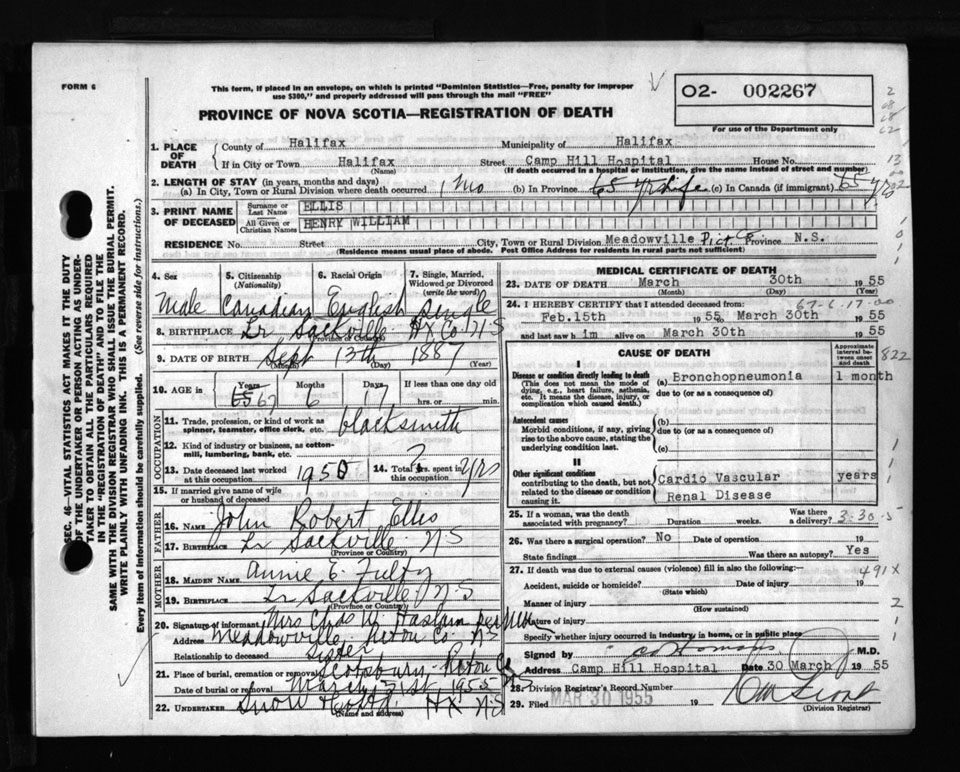 FORM 6
This form, if placed in an envelope, on which is printed "Dominion Statistics—Free, penalty for improper
use $300," and properly addressed will pass through the mail "FREE"
02- 002267
For use of the Department only
PROVINCE OF NOVA SCOTIA—REGISTRATION OF DEATH
SEC. 46—VITAL STATISTICS ACT MAKES IT THE DUTY
OF THE UNDERTAKER OR PERSON ACTING AS UNDER-
TAKER TO OBTAIN ALL THE PARTICULARS REQUIRED
IN THE "REGISTRATION OF DEATH" AND TO FILE THE
SAME WITH THE DIVISION REGISTRAR WHO SHALL ISSUE THE BURIAL PERMIT.
WRITE PLAINLY WITH UNFADING INK. THIS IS A PERMANENT RECORD.
Every item of information should be carefully supplied. (See reverse side for instructions.)
1. PLACE OF DEATH
County of Halifax Municipality of Halifax
If in City or Town Halifax Street Camp Hill Hospital House No.
(Name) (If death occurred in a hospital or institution, give the name instead of street and number)
2. LENGTH OF STAY (in years, months and days)
(a) In City, Town or Rural Division where death occurred 1 Mo (b) In Province 65 yrs life (c) In Canada (if immigrant) 65 yrs
3. PRINT NAME OF DECEASED
Surname or Last Name ELLIS
All Given or Christian Names HENRY WILLIAM
RESIDENCE No. Street City, Town or Rural Division Meadowville Pict Co Province N.S.
(Residence means usual place of abode. Post Office Address for residents in rural parts not sufficient)
4. Sex 5. Citizenship (Nationality) 6. Racial Origin 7. Single, Married, Widowed or Divorced (write the word)
Male Canadian English Single
8. BIRTHPLACE Lr Sackville Hx Co N S
(Province or Country)
9. DATE OF BIRTH Sept 13th 1887
(Month) (Day) (Year)
10. AGE in Years Months Days If less than one day old
65 67 6 17 hrs. or min.
OCCUPATION
11. Trade, profession, or kind of work as
spinner, teamster, office clerk, etc. blacksmith
12. Kind of industry or business, as cotton-
mill, lumbering, bank, etc.
13. Date deceased last worked at this occupation 1950 14. Total yrs. spent in this occupation ? yrs
15. If married give name of wife
or husband of deceased
FATHER
16. NAME John Robert Ellis
17. BIRTHPLACE Lr Sackville N S
(Province or Country)
MOTHER
18. MAIDEN NAME Annie E. Fultz
19. BIRTHPLACE Lr Sackville N S
(Province or Country)
20. Signature of informant Mrs Chas W. Haslam
Address Meadowville Pictou Co N S
Relationship to deceased Sister
21. Place of burial, cremation or removal Scotsburn Pictou Co
Date of burial or removal March 31st 1955
22. UNDERTAKER Snow Hx N S
(Name and address)
MEDICAL CERTIFICATE OF DEATH
23. DATE OF DEATH March 30th 1955
(Month) (Day) (Year)
67-6-17-00
24. I HEREBY CERTIFY that I attended deceased from:
Feb.15th 1955 to March 30th 1955
and last saw h im alive on March 30th 1955
CAUSE OF DEATH
Approximate interval between onset and death
822
I
Disease or condition directly leading to death
(This does not mean the mode of
dying, e.g., heart failure, asthenia,
etc. It means the disease, injury, or
complication which caused death.)
(a) Bronchopneumonia 1 month
due to (or as a consequence of)
Antecedent causes
Morbid conditions, if any, giving
rise to the above cause, stating the
underlying condition last.
(b)
due to (or as a consequence of)
(c)
II
Other significant conditions
contributing to the death, but not
related to the disease or condition
causing it.
Cardio Vascular years
Renal Disease
25. If a woman, was the death associated with pregnancy? Duration weeks. Was there a delivery?
3-30-5
26. Was there a surgical operation? No Date of operation 19
State findings Was there an autopsy? Yes
27. If death was due to external causes (violence) fill in also the following:—
491X
Accident, suicide or homicide? Date of injury 19
(State which)
Manner of injury
(How sustained)
Nature of injury
Specify whether injury occurred in industry, in home, or in public place
Signed by M.D.
Address Camp Hill Hospital Date 30 March 1955
28. Division Registrar's Record Number
29. Filed MAR 30 1955 19
(Division Registrar)